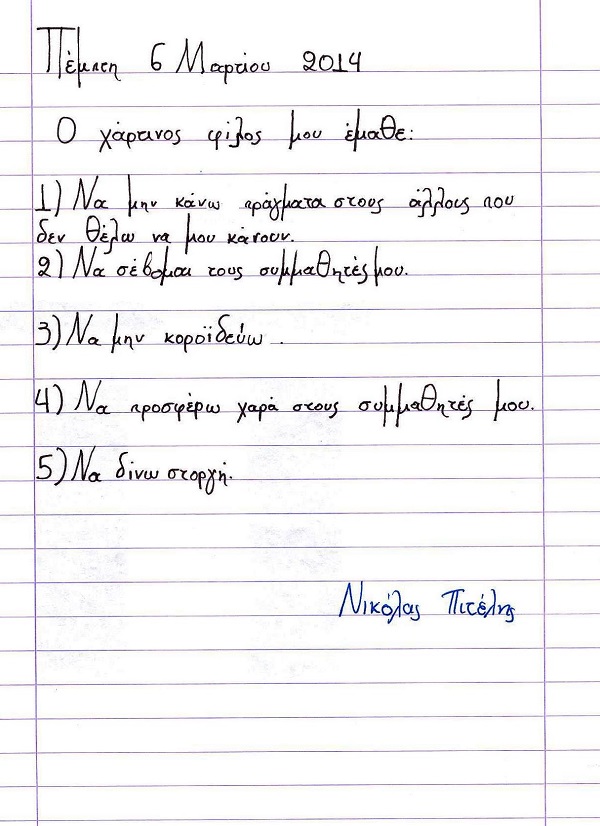 Πέμπτη 6 Μαρτίου 2014
Ο χάρτινος φίλος μου έμαθε:
1) Να μην κάνω πράγματα στους άλλους που
δεν θέλω να μου κάνουν.
2) Να σέβομαι τους συμμαθητές μου.
3) Να μην κοροϊδεύω.
4) Να προσφέρω χαρά στους συμμαθητές μου.
5) Να δίνω στοργή.
Νικόλας Πιτέλης